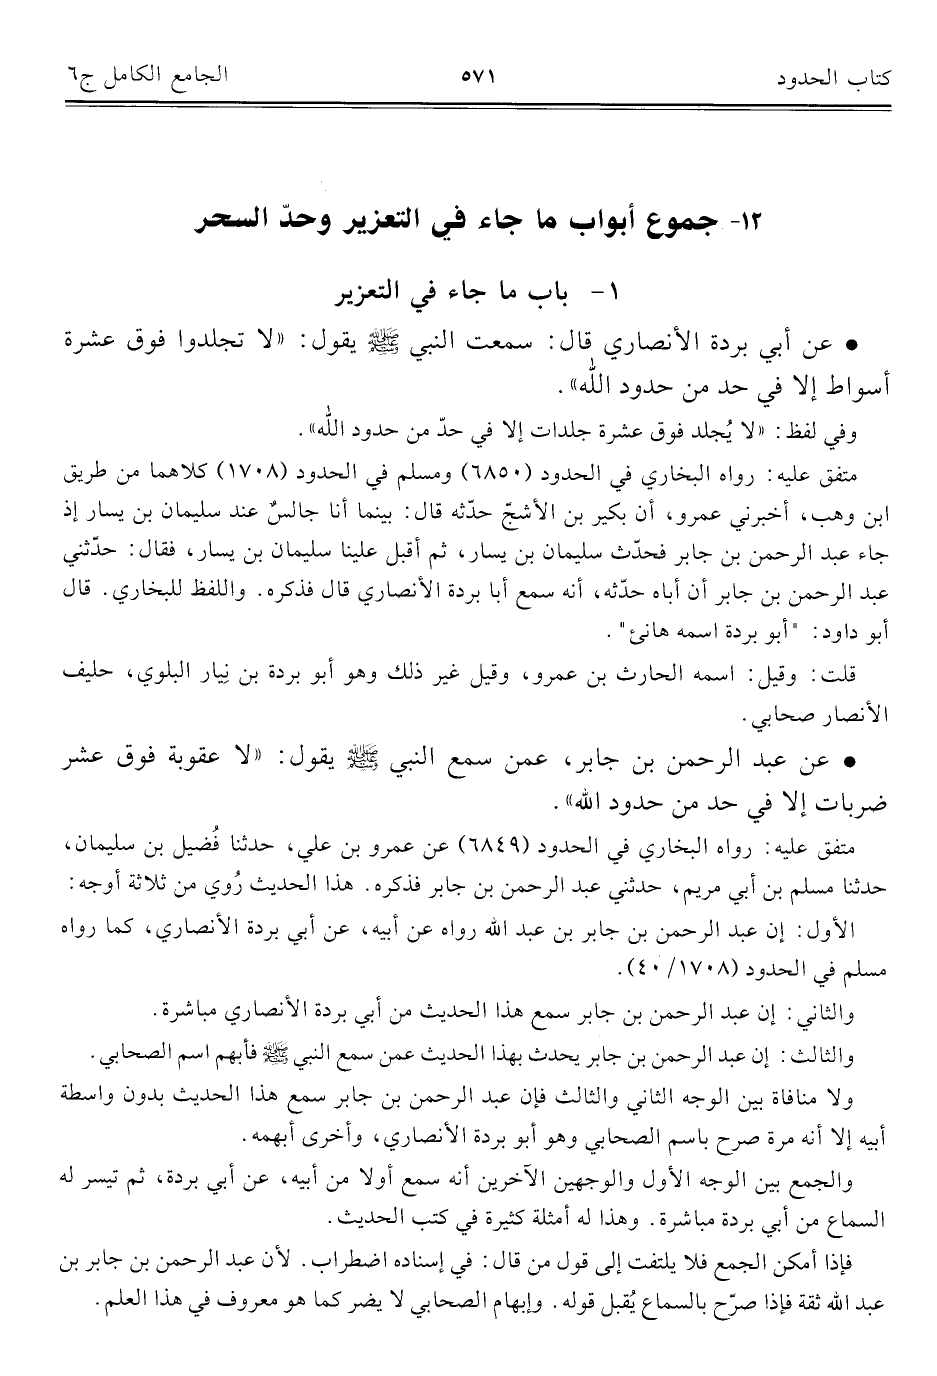 كتاب الحدود ٥٧١ الجامع الكامل ج٦
١٢- جموع أبواب ما جاء في التعزير وحدّ السحر
١- باب ما جاء في التعزير
• عن أبي بردة الأنصاري قال: سمعت النبي ﷺ يقول: «لا تجلدوا فوق عشرة
أسواط إلا في حد من حدود الله».
وفي لفظ: «لا يُجلد فوق عشرة جلدات إلا في حدّ من حدود الله».
متفق عليه: رواه البخاري في الحدود (٦٨٥٠) ومسلم في الحدود (١٧٠٨) كلاهما من طريق
ابن وهب، أخبرني عمرو، أن بكير بن الأشجّ حدّثه قال: بينما أنا جالسٌ عند سليمان بن يسار إذ
جاء عبد الرحمن بن جابر فحدّث سليمان بن يسار، ثم أقبل علينا سليمان بن يسار، فقال: حدّثني
عبد الرحمن بن جابر أن أباه حدّثه، أنه سمع أبا بردة الأنصاري قال فذكره. واللفظ للبخاري. قال
أبو داود: "أبو بردة اسمه هانئ".
قلت: وقيل: اسمه الحارث بن عمرو، وقيل غير ذلك وهو أبو بردة بن نِيار البلوي، حليف
الأنصار صحابي.
• عن عبد الرحمن بن جابر، عمن سمع النبي ﷺ يقول: «لا عقوبة فوق عشر
ضربات إلا في حد من حدود الله».
متفق عليه: رواه البخاري في الحدود (٦٨٤٩) عن عمرو بن علي، حدثنا فُضيل بن سليمان،
حدثنا مسلم بن أبي مريم، حدثني عبد الرحمن بن جابر فذكره. هذا الحديث رُوي من ثلاثة أوجه:
الأول: إن عبد الرحمن بن جابر بن عبد الله رواه عن أبيه، عن أبي بردة الأنصاري، كما رواه
مسلم في الحدود (١٧٠٨/ ٤٠).
والثاني: إن عبد الرحمن بن جابر سمع هذا الحديث من أبي بردة الأنصاري مباشرة.
والثالث: إن عبد الرحمن بن جابر يحدث بهذا الحديث عمن سمع النبي ﷺ فأبهم اسم الصحابي.
ولا منافاة بين الوجه الثاني والثالث فإن عبد الرحمن بن جابر سمع هذا الحديث بدون واسطة
أبيه إلا أنه مرة صرح باسم الصحابي وهو أبو بردة الأنصاري، وأخرى أبهمه.
والجمع بين الوجه الأول والوجهين الآخرين أنه سمع أولا من أبيه، عن أبي بردة، ثم تيسر له
السماع من أبي بردة مباشرة. وهذا له أمثلة كثيرة في كتب الحديث.
فإذا أمكن الجمع فلا يلتفت إلى قول من قال: في إسناده اضطراب. لأن عبد الرحمن بن جابر بن
عبد الله ثقة فإذا صرّح بالسماع يُقبل قوله. وإبهام الصحابي لا يضر كما هو معروف في هذا العلم.